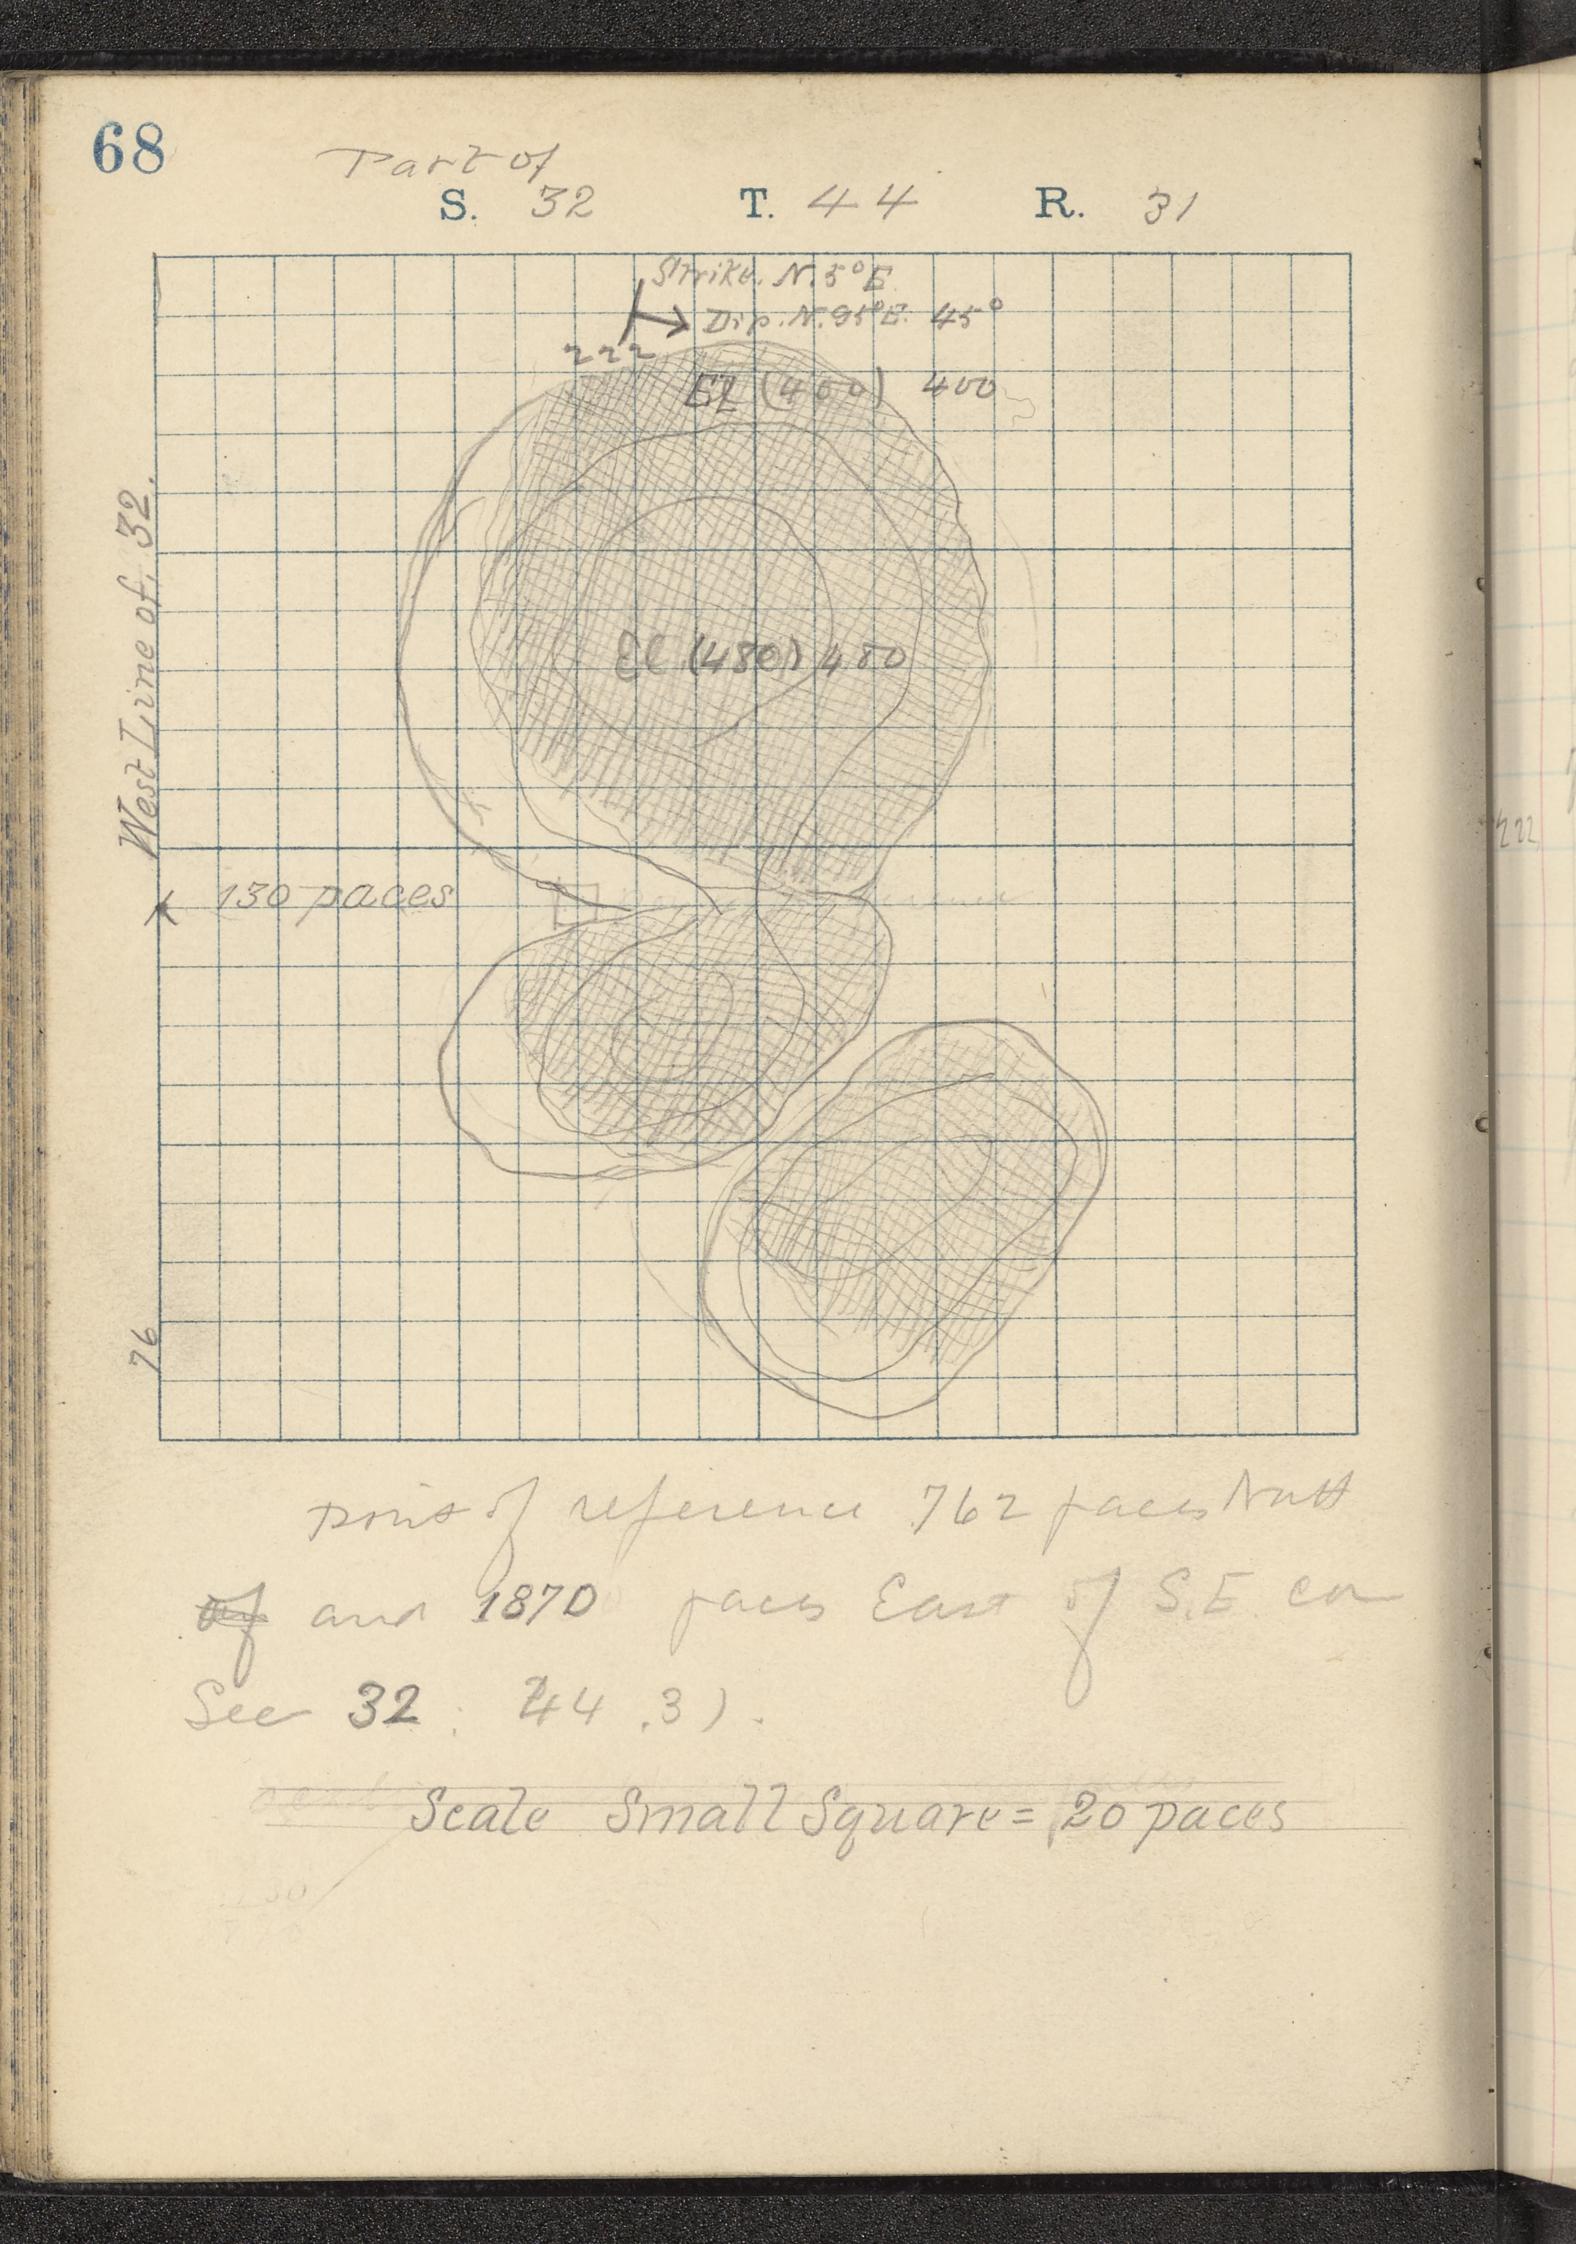 68
Part of
S. 32 T. 44 R. 31
Strike. N. 5° E.
Dip. N. 95° E. 45°
222
El (460) 400
West Line of. 32.
El (480) 480
222
130 paces
76
Point of reference 762 paces North
of and 1870 paces East of S.E. cor
Sec 32 : 44 . 31.
Scale Small Square = 20 paces